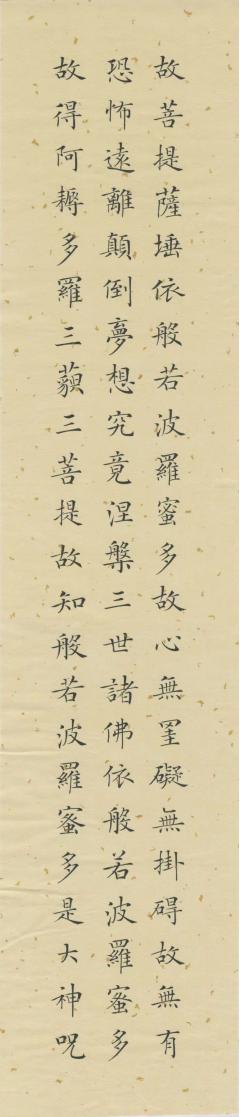 故菩提薩埵依般若波羅蜜多故心無罣礙無掛碍故無有
恐怖遠離顛倒夢想究竟涅槃三世諸佛依般若波羅蜜多
故得阿耨多羅三藐三菩提故知般若波羅蜜多是大神呪